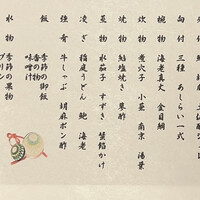 向付 三種 あしらい一式
椀物 海老真丈 金目鯛
炊物 煮穴子 小蕪 南京 湯葉
焼物 鮎塩焼き 蓼酢
煮物 水茄子 すずき 蟹餡かけ
凌ぎ 稲庭うどん 鮑 海老
強肴 牛しゃぶ 胡麻ポン酢
飯 季節の御飯
香の物
味噌汁
水物 季節の果物
プリン